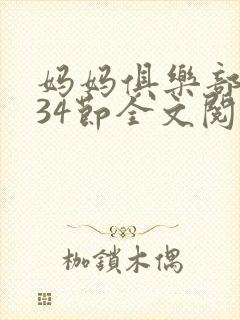 妈妈俱樂部
34節全文閱
枷鎖木偶